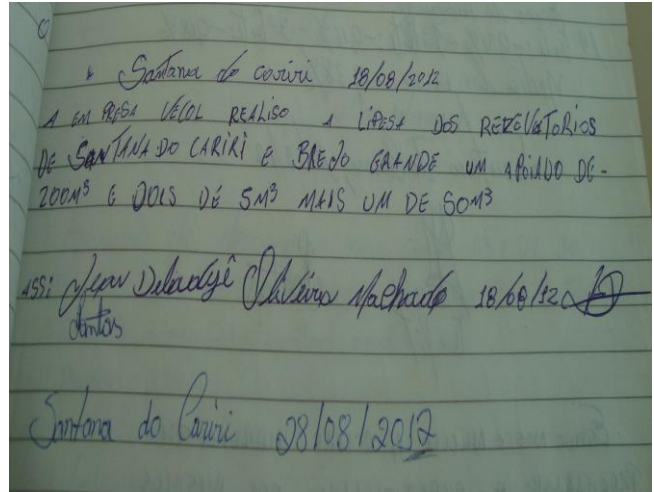 Santana do cariri 18/08/2012
A EMPRESA VECOL REALISO A LIPESA DOS REZEVATORIOS
DE SANTANA DO CARIRI E BREJO GRANDE UM APOIADO DE-
200M³ E DOIS DE 5M³ MAIS UM DE 50M³
ASS: Jean Oliveira Machado 18/08/12
Santana do Cariri 28/08/2012